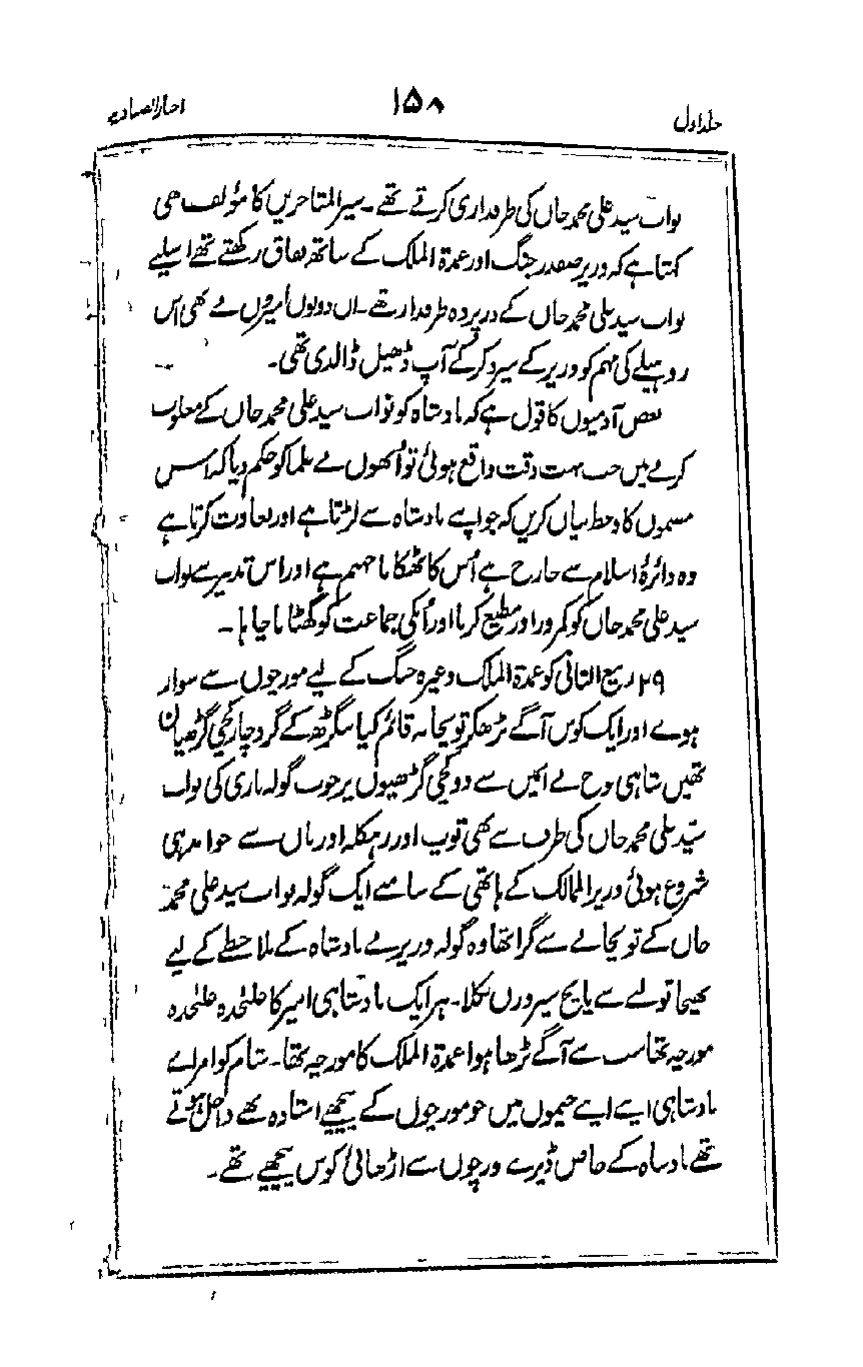 جلد اول ۱۵۸ اخبار الصنادید
نواب سید علی محمد خاں کی طرفداری کرتے تھے۔ سیر المتاخرین کا مؤلف بھی
کہتا ہے کہ وزیر صفدر جنگ اور عمدۃ الملک کے ساتھ نفاق رکھتے تھے اسلیے
نواب سید علی محمد خاں کے در پردہ طرفدار تھے۔ ان دونوں امیروں نے بھی اس
روہیلے کی مہم کو وزیر کے سپرد کر کے آپ ڈھیل ڈالدی تھی۔
بعض آدمیوں کا قول ہے کہ بادشاہ کو نواب سید علی محمد خاں کے مغلوب
کرنے میں جب بہت دقت واقع ہوئی تو اُنھوں نے علما کو حکم دیا کہ اس
مسموں کا وعظ بیاں کریں کہ جو اپنے بادشاہ سے لڑتا ہے اور بغاوت کرتا ہے
وہ دائرۂ اسلام سے خارج ہے اُس کا ٹھکانا جہنم ہے اور اس تدبیر سے نواب
سید علی محمد خاں کو کمزور اور مطیع کرنا اور اُنکی جماعت کو گھٹانا چاہا۔
۲۹ ربیع الثانی کو عمدۃ الملک وغیرہ جنگ کے لیے مورچوں سے سوار
ہوے اور ایک کوس آگے بڑھکر توپخانہ قائم کیا بنگڑھ کے گرد چار کچی گڑھیان
تھیں شاہی فوج نے انمیں سے دو کچی گڑھیوں پر خوب گولہ باری کی نواب
سیّد علی محمد خاں کی طرف سے بھی توپ اور رہکلہ اور بان سے جواب دہی
شروع ہوئی وزیر الممالک کے ہاتھی کے سامنے ایک گولہ نواب سید علی محمد
خاں کے توپخانے سے گرا تھا وہ گولہ وزیر نے بادشاہ کے ملاحظے کے لیے
بھیجا تولنے سے پانچ سیر وزن نکلا۔ ہر ایک بادشاہی امیر کا علٰحدہ علٰحدہ
مورچہ تھا سب سے آگے بڑھا ہوا عمدۃ الملک کا مورچہ تھا۔ شام کو امراے
بادشاہی اپنے اپنے خیموں میں جو مورچوں کے پیچھے استادہ تھے داخل ہوتے
تھے بادشاہ کے خاص ڈیرے مورچوں سے اڑھائی کوس پیچھے تھے۔